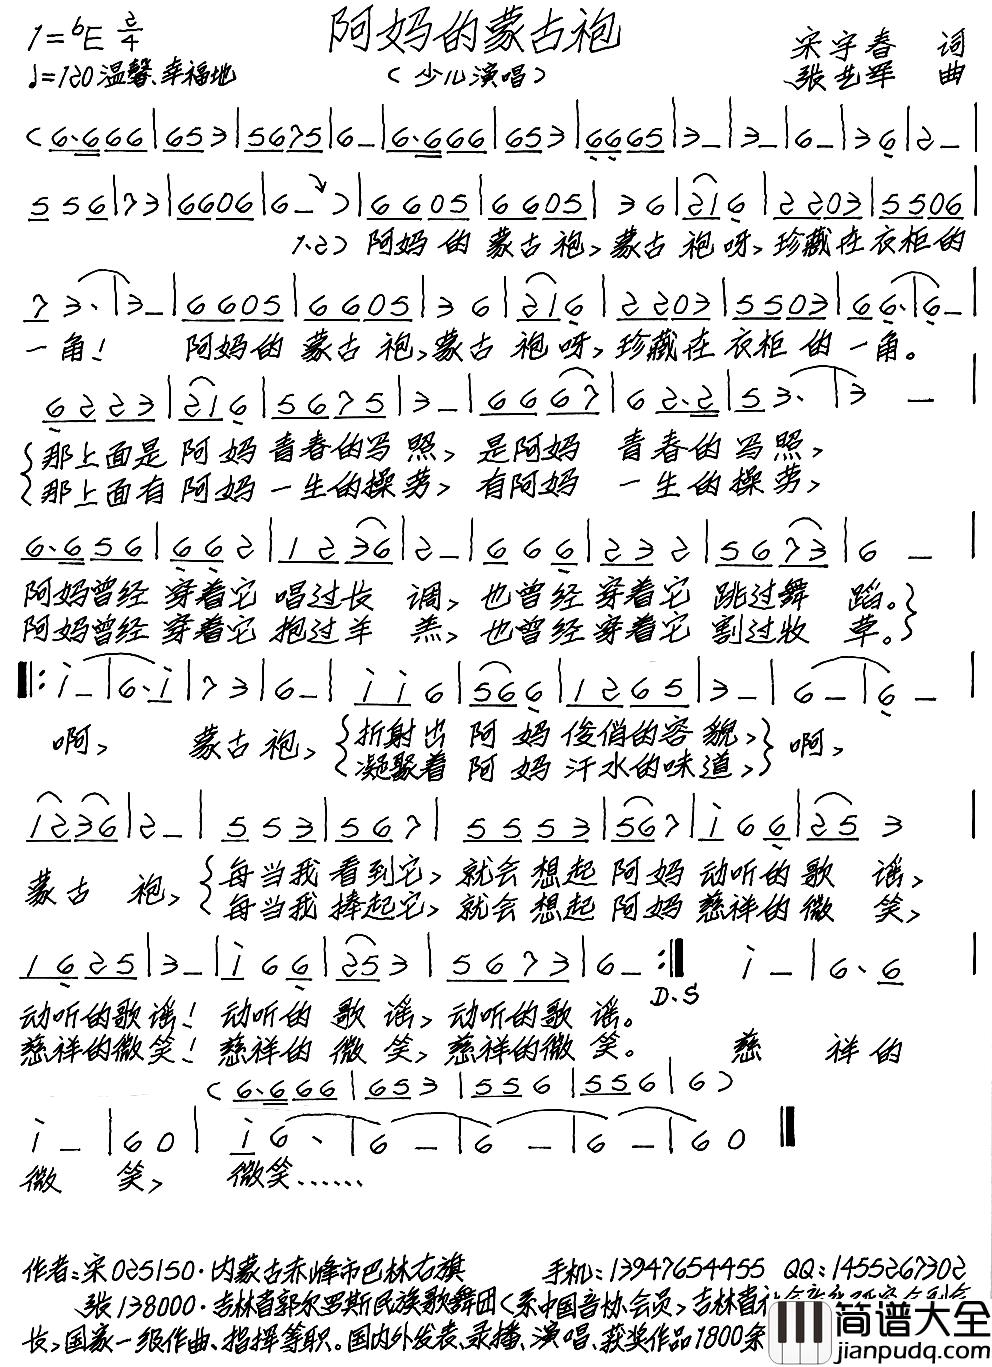 阿妈的蒙古袍
1=♭E 2/4
（少儿演唱）
宋宇春 词
♩=120 温馨、幸福地
张艺军 曲
(6·666|653|5675|6–|6·666|653|6665|3–|3–|6–|36|2–|
556|73|6606|6–)|6605|6605|36|216|2203|5506|
1.2) 阿妈的蒙古袍，蒙古袍呀，珍藏在衣柜的
73·|3–|6605|6605|36|216|2203|5503|66·|6–|
一角！ 阿妈的蒙古袍，蒙古袍呀，珍藏在衣柜的一角。
6223|216|5675|3–|6667|62·2|53·|3–|
那上面是阿妈青春的写照，是阿妈青春的写照，
那上面有阿妈一生的操劳，有阿妈一生的操劳，
6·656|662|1236|2–|666|232|5673|6–|
阿妈曾经穿着它唱过长调，也曾经穿着它跳过舞蹈。
阿妈曾经穿着它抱过羊羔，也曾经穿着它割过牧草。
‖:i–|6·i|73|6–|ii6|566|1265|3–|6–|6–|
啊， 蒙古袍，折射出阿妈俊俏的容貌，啊，
凝聚着阿妈汗水的味道，
1236|2–|553|567|5553|567|i66|253|
蒙古袍，每当我看到它，就会想起阿妈动听的歌谣，
每当我捧起它，就会想起阿妈慈祥的微笑，
1625|3–|i66|253|5673|6–:‖ i–|6·6|
D.S
动听的歌谣！动听的歌谣，动听的歌谣。
慈祥的微笑！慈祥的微笑，慈祥的微笑。 慈祥的
(6·666|653|556|556|6)
i–|60|i6·|6–|6–|6–|60‖
微笑， 微笑……
作者：宋025150·内蒙古赤峰市巴林右旗 手机：13947654455 QQ：1455267302
张138000·吉林省郭尔罗斯民族歌舞团（系中国音协会员，吉林省
长，国家一级作曲、指挥等职。国内外发表、录播、演唱、获奖作品1800余
简谱大全
www.jianpudq.com